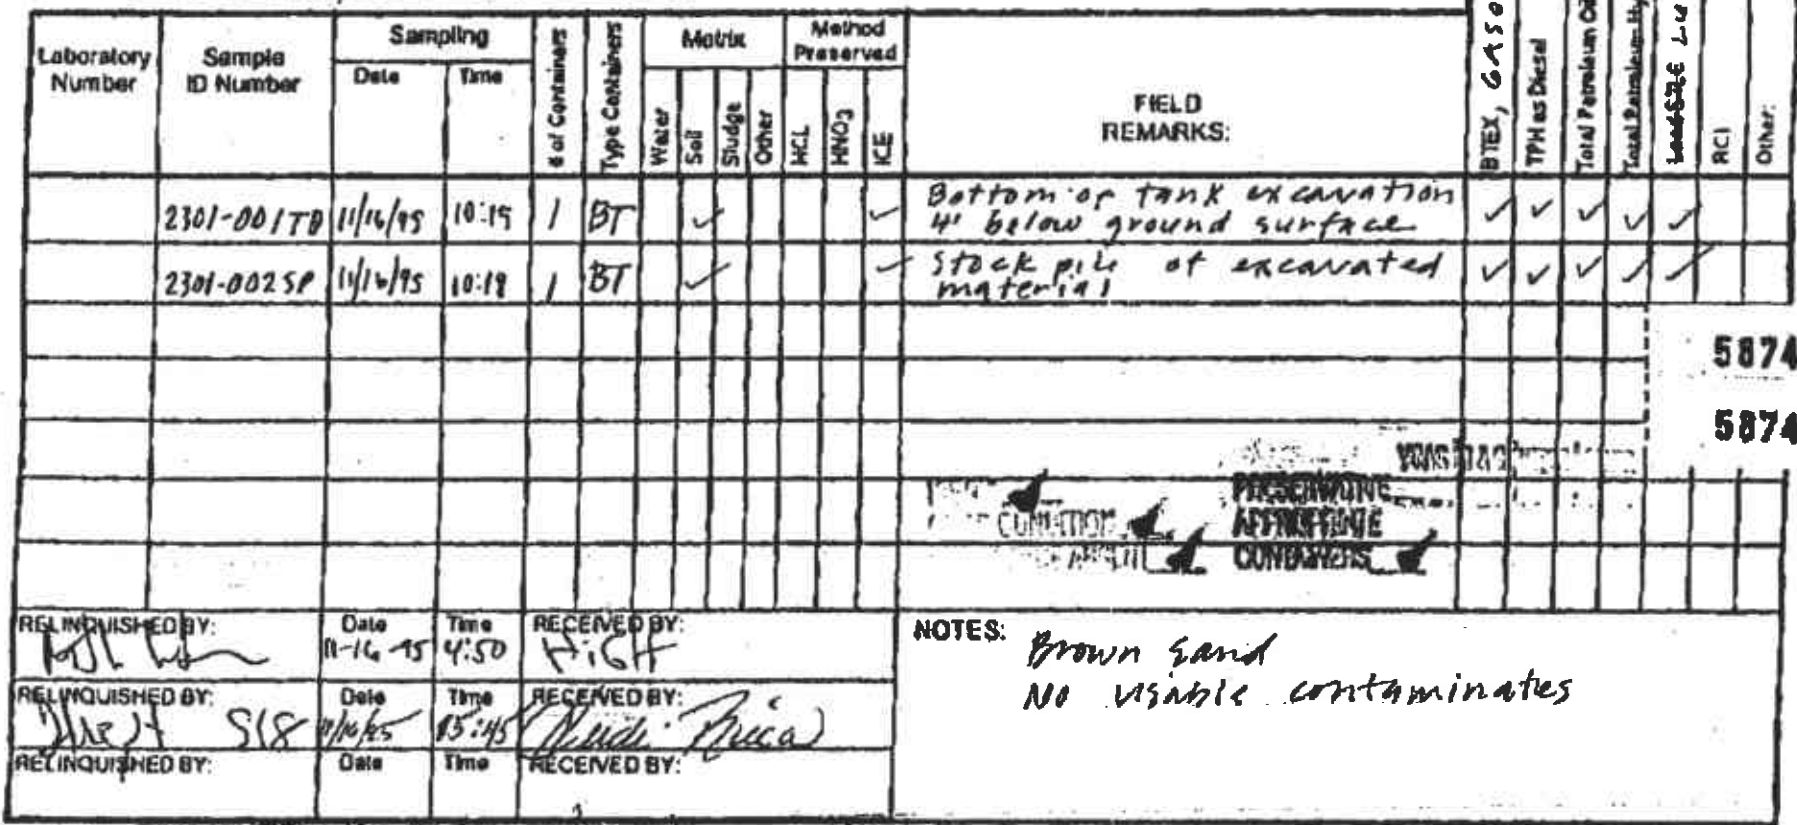 Laboratory Number
Sample ID Number
Sampling
Date
Time
# of Containers
Type Containers
Matrix
Water
Soil
Sludge
Other
Method Preserved
HCL
HNO3
ICE
FIELD
REMARKS:
BTEX, GASO
TPH as Diesel
Total Petroleum Oi
Total Petroleum Hy
RCI
Other:
2301-001TB 11/16/95 10:15 1 BT ✓ ✓ Bottom of tank excavation
4' below ground surface ✓ ✓ ✓ ✓ ✓
2301-002SP 11/16/95 10:18 1 BT ✓ ✓ Stock pile of excavated
material ✓ ✓ ✓ ✓ ✓
5874
5874
VOAS
PRESERVATIVE
APPROPRIATE
CONTAINERS
RELINQUISHED BY: Date Time RECEIVED BY:
11-16-95 4:50
RELINQUISHED BY: Date Time RECEIVED BY:
518 11/16/95 15:45
RELINQUISHED BY: Date Time RECEIVED BY:
NOTES: Brown Sand
No visible contaminates